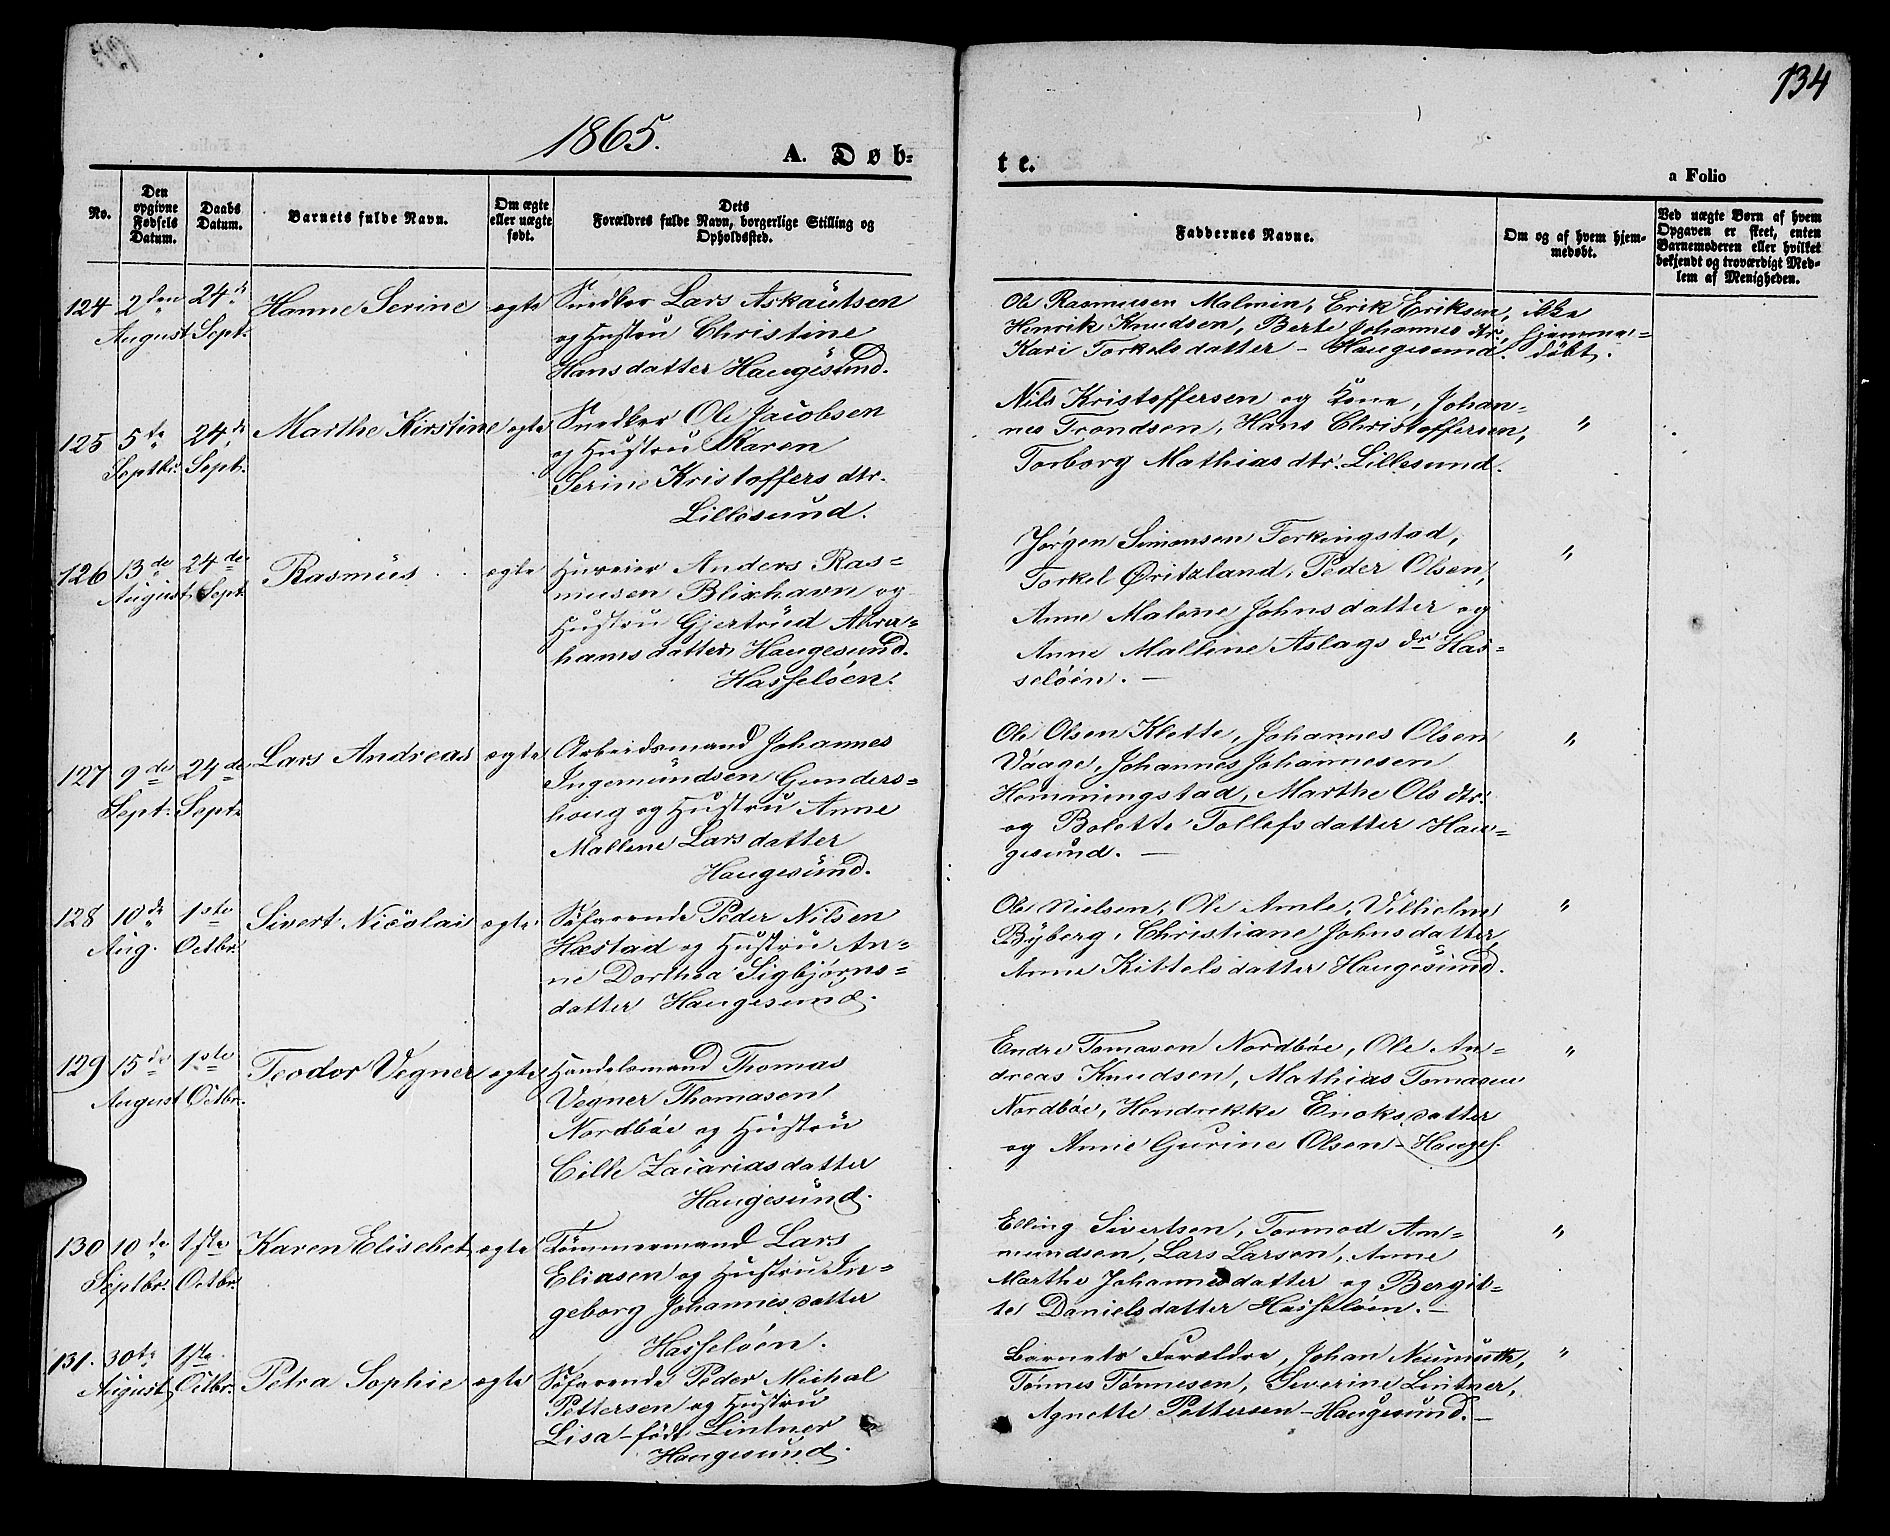 134
1865.
A. Døb-
te.
a Folio
No.
Den opgivne Fødsels Datum.
Daabs Datum.
Barnets fulde Navn.
Om ægte eller uægte født.
Dets Forældres fulde Navn, borgerlige Stilling og Opholdssted.
Faddernes Navne.
Om og af hvem hjemmedøbt.
Ved uægte Børn af hvem Opgaven er skeet, enten Barnemoderen eller hvilket bekjendt og troværdigt Medlem af Menigheden.
124 2den August 24de Sept. Hanne Serine ægte
Snedker Lars Askautsen
og Hustru Christine
Hansdatter Haugesund.
Ole Rasmussen Malmin, Erik Eriksen,
Henrik Knudsen, Berte Johannesdtr,
Kari Torkelsdatter – Haugesund.
ikke
hjemme=
døbt.
125 5te Septbr. 24de Sept. Marthe Kirstine ægte
Snedker Ole Jacobsen
og Hustru Karen
Serine Kristoffersdtr.
Lillesund.
Nils Kristoffersen og Kone, Johan=
nes Trondsen, Hans Christoffersen,
Torborg Mathiasdtr. Lillesund.
"
126 13de August 24de Sept. Rasmus ægte
Huseier Anders Ras=
musen Blixhavn og
Hustru Gjertrud Abra=
hamsdatter Haugesund.
Hasseløen.
Jørgen Simonsen Ferkingstad,
Torkel Øritzland, Peder Olsen,
Anne Malene Johnsdatter og
Anne Mallene Aslagsdr Has=
seløen. –
"
127 9de Sept. 24de Sept. Lars Andreas ægte
Arbeidsmand Johannes
Ingemundsen Gunders=
houg og Hustru Anne
Mallene Larsdatter
Haugesund.
Ole Olsen Klette, Johannes Olsen
Vaage, Johannes Johannesen
Hemmingstad, Marthe Olsdtr.
og Bolette Tollefsdatter Hau=
gesund. –
"
128 10de Aug. 1ste Octbr. Sivert Nicolai ægte
Søfarende Peder Nilsen
Hæstad og Hustru An=
ne Dorthea Sigbjørns=
datter Haugesund.
Ole Nielsen, Ole Amle, Vilhelm
Byberg, Christiane Johnsdatter,
Anne Kittelsdatter Haugesund.
"
129 15de August 1ste Octbr. Teodor Vegner ægte
Handelsmand Thomas
Vegner Thomasen
Nordbøe og Hustru
Cille Zacariasdatter
Haugesund.
Endre Tomasen Nordbøe, Ole An=
dreas Knudsen, Mathias Tomasen
Nordbøe, Hendrekke Enoksdatter
og Anne Gurine Olsen – Hauges.
"
130 10de Septbr. 1ste Octbr. Karen Elisebet ægte
Tømmermand Lars
Eliasen og Hustru In=
geborg Johannesdatter
Hasseløen.
Elling Sivertsen, Tormod Am=
mundsen, Lars Larsen, Anne
Marthe Johannesdatter og Bergit=
te Danielsdatter Hasseløen. –
"
131. 30te August 1ste Octbr. Petra Sophie ægte
Søfarende Peder Michal
Pettersen og Hustru
Lisa – født Lintner
Haugesund.
Barnets Forældre, Johan Neumuth,
Tønnes Tønnesen, Severine Lintner,
Agnette Pettersen – Haugesund. –
"